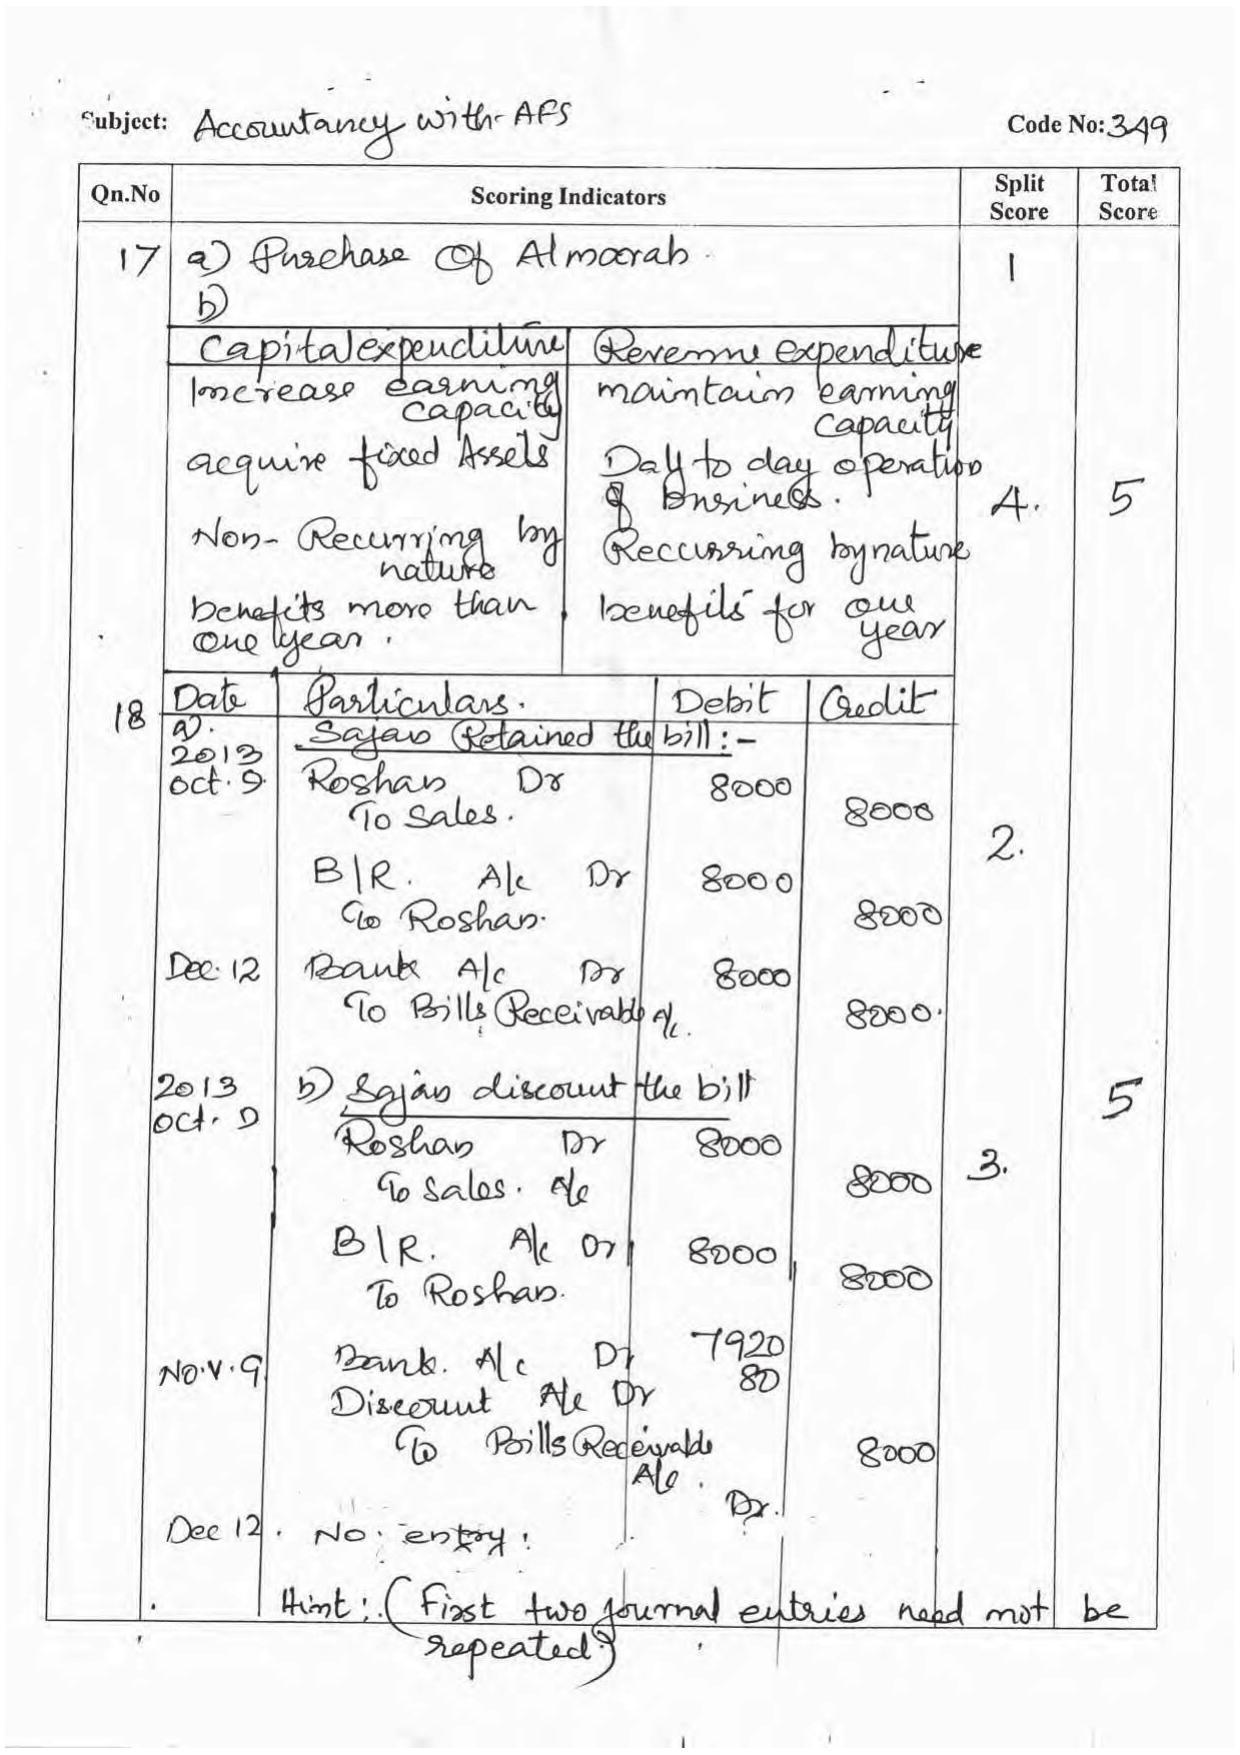 Subject: Accountancy with AFS Code No: 349
Qn.No Scoring Indicators Split Score Total Score
17 a) Purchase Of Almoorah. 1
b)
Capital expenditure Revenue expenditure
Increase earning capacity maintain earning capacity
acquire fixed Assets Day to day operation of business.
4. 5
Non-Recurring by nature Reccurring by nature
benefits more than one year. benefits for one year
18 Date Particulars. Debit Credit
a). Sajan Retained the bill:-
2013
Oct. 9 Roshan Dr 8000
To Sales. 8000
2.
B/R. A/c Dr 8000
To Roshan. 8000
Dec. 12 Bank A/c Dr 8000
To Bills Receivable A/c. 8000.
2013 b) Sajan discount the bill 5
Oct. 9
Roshan Dr 8000
To Sales. A/c 8000 3.
B/R. A/c Dr 8000
To Roshan. 8000
Nov. 9 Bank. A/c Dr 7920
Discount A/c Dr 80
To Bills Receivable A/c. 8000
Dr.
Dec 12. No. entry.
Hint: (First two journal entries need not be
repeated)